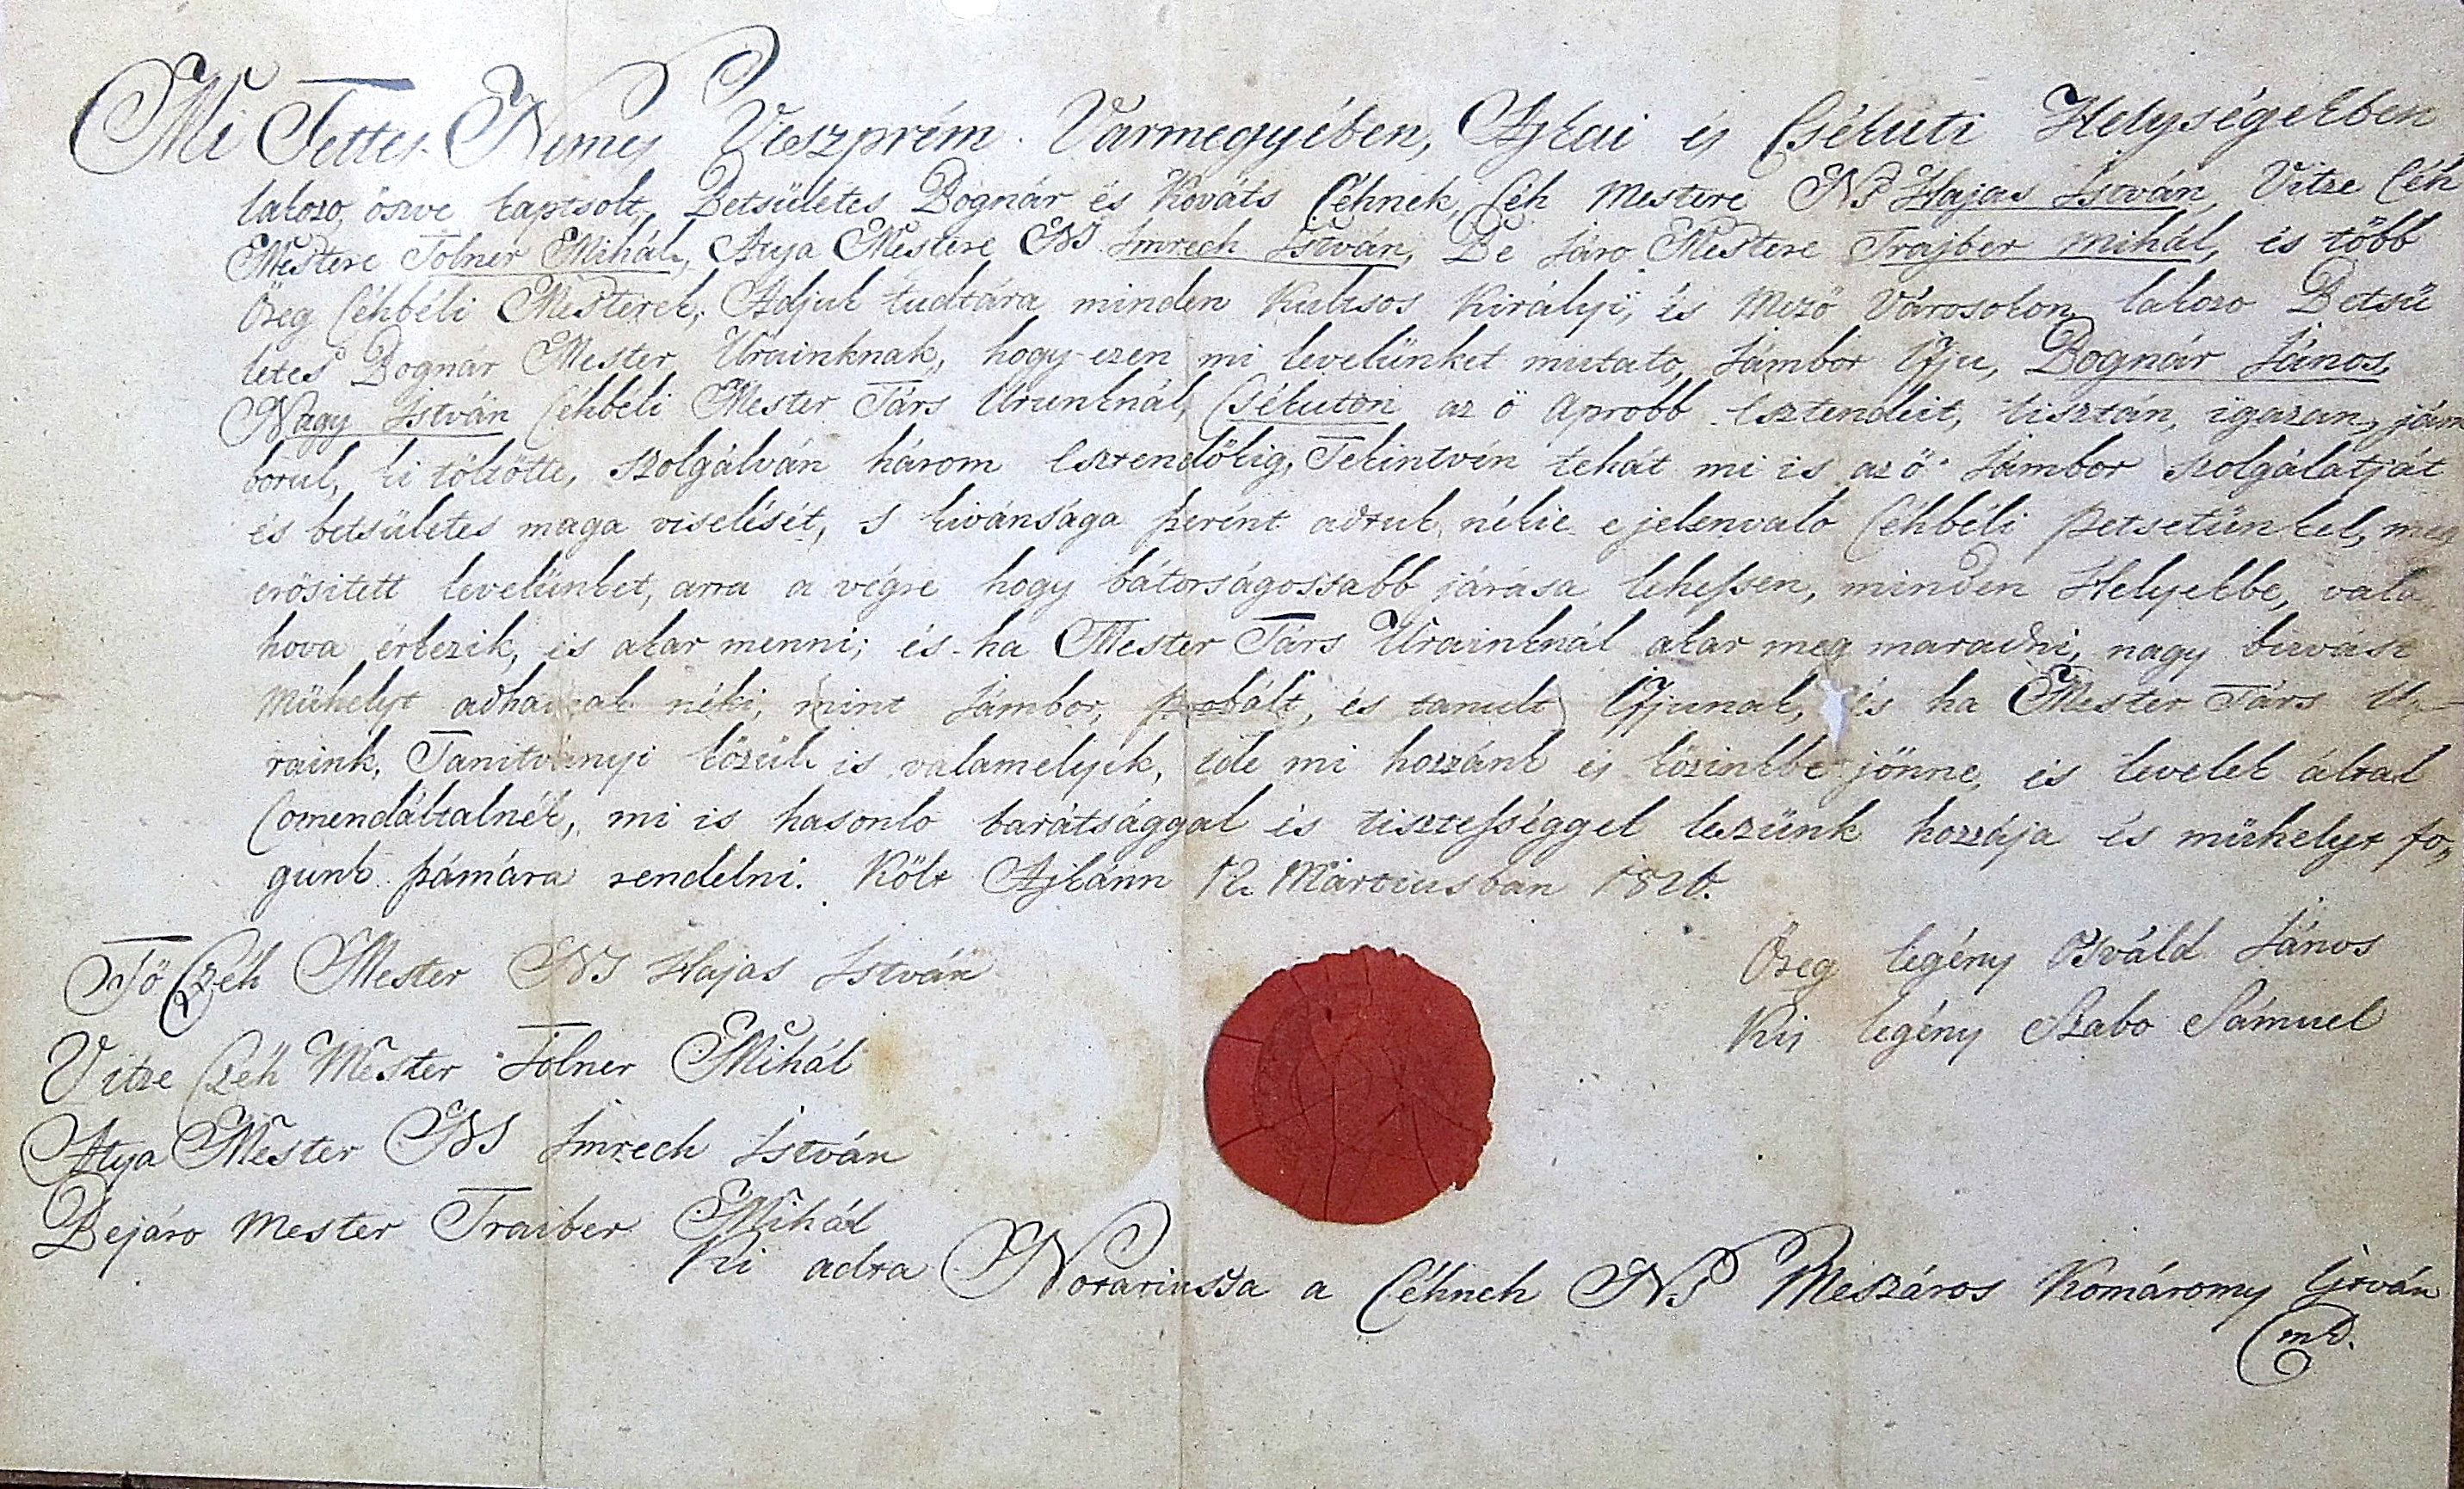 Mi Tettes Nemes Veszprém Vármegyében, Ajkai és Csékúti Helységekben
lakozo öszve kaptsolt Betsületes Bognár és Kováts Céhnek, Céh Mestere NS Hajas István, Vitze Céh
Mestere Tolner Mihál, Atya Mestere NS. Imrech István, Be Járo Mestere Trajber Mihál, és több
Öreg Céhbéli Mesterek, Adjuk tudtára minden Kultsos Királyi, és Mező Városokon lakozo Betsü
letes Bognár Mester Urainknak, hogy ezen mi levelünket mutato, Jámbor Ifju, Bognár János,
Nagy István Céhbéli Mester Társ Urunknál, Csékuton az ő Aprobb Esztendeit, tisztán, igazan, jám
borul, ki töltötte, szolgálván három Esztendőkig, Tekintvén tehát mi is az ő Jámbor szolgálatját
és betsületes maga viselését, s kivánsága szerént adtuk nékie e jelenvaló Céhbéli petsetünkel, meg
erősitett levelünket, arra a végre hogy bátorságossabb járása lehessen, minden Helyekbe, vala
hova érkezik, és akar menni; és ha Mester Társ Urainknál akar meg maradni, nagy
Mühelyt adhassak néki, mint Jámbor, probált, és tanult Ifjunak, és ha Mester Társ U
raink, Tanitványi közül is valamelyik, ide mi hozzánk és közinkbe jönne, és levelek által
Comendáltatnék, mi is hasonló barátsággal és tisztességgel leszünk hozzája és mühelyt fo
gunk számára rendelni. Költ Ajkánn 12. Mártiusban 1826.
Öreg legény Osváld János
Kis legény Szabo Sámuel
Fő Czéh Mester NS Hajas István
Vitze Czéh Mester Tolner Mihál
Atya Mester NS Imrech István
Bejáro Mester Traiber Mihál
Ki adta Notariussa a Céhnek NS Mészáros Komáromy István
mp.